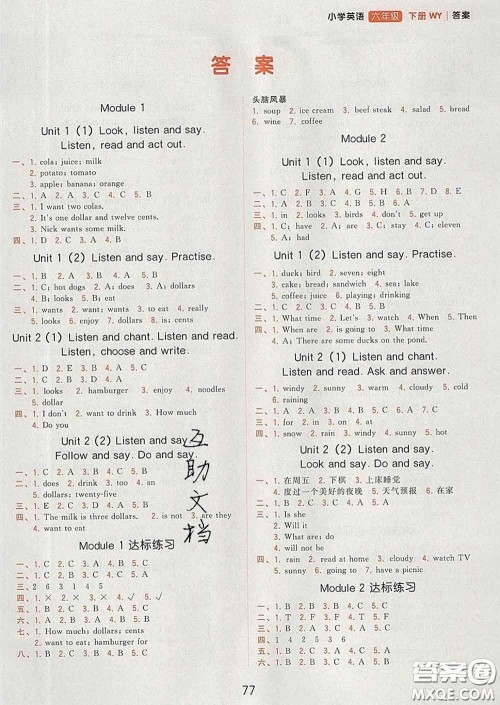 小学英语 六年级 下册 WY 答案
答 案
Module 1
Unit 1 (1) Look, listen and say.
Listen, read and act out.
一、1. cola; juice; milk
2. potato; tomato
3. apple; banana; orange
二、1. A 2. A 3. C 4. C 5. B
三、1. I want two colas.
2. It's one dollar and twelve cents.
3. Nick wants some milk.
四、1. D 2. C 3. A 4. B
Unit 1 (2) Listen and say. Practise.
一、1. B 2. B 3. A 4. A 5. B
二、1. C; hot dogs 2. A; dollars
4. B; looks 5. B; eat
三、1. want 2. wants 3. to eat 4. really
5. looks 6. enjoy 7. dollars 8. is; cents
Unit 2 (1) Listen and chant. Listen and read.
Listen, choose and write.
一、1. D 2. E 3. B 4. A 5. C
二、1. looks 2. hamburger 3. enjoy 4. noodles
5. dollar
三、1. C 2. A 3. B 4. C 5. A
四、1. I don't 2. want to drink 3. How much
4. Do you
Unit 2 (2) Listen and say
Follow and say. Do and say.
一、1. C 2. A 3. B 4. C 5. B
二、1. does 2. drink 3. too 4. an
5. dollars; twenty-five
三、1. C 2. A 3. B 4. D
四、1. The milk is three dollars. 2. is not 3. are they
4. want to eat
Module 1 达标练习
一、1. B 2. C 3. A 4. C 5. B
二、1. B 2. C 3. C 4. B 5. A
三、2 6 3 1 4 5
四、1. × 2. × 3. × 4. √ 5. √
五、1. B 2. A 3. C 4. B 5. C
六、1. A 2. B 3. A 4. B 5. A
七、1. How much; dollars; cents
2. want to; hamburger for
八、1. C 2. A 3. C 4. B 5. A
头脑风暴
1. soup 2. ice cream 3. beef steak 4. salad 5. bread
6. wine 7. coffee
Module 2
Unit 1 (1) Look, listen and say.
Listen, read and act out.
一、1. C 2. F 3. A 4. G 5. H 6. B 7. D 8. E
二、1. A 2. B 3. B 4. A 5. A
三、1. in 2. looks 3. birds 4. don't 5. get up
四、1. C; have 2. A; are 3. C; start 4. C; eleven
5. A; had
Unit 1 (2) Listen and say. Practise.
一、1. duck; bird 2. seven; eight
3. cake; bread; sandwich 4. sea; lake
5. coffee; juice 6. sunny; cloudy
二、1. B 2. C 3. A 4. A 5. A
三、1. What time 2. Let's 3. watch 4. When
5. to have
四、1. What time 2. When are 3. is going to
4. What is going to 5. What
五、1. A 2. There are some ducks on the pond.
Unit 2 (1) Listen and chant.
Listen and read. Ask and answer.
一、1. windy 2. sunny 3. windy 4. cloudy 5. cold
6. raining
二、1. B 2. B 3. C 4. B 5. A
三、1. be 2. will 3. at 4. for 5. in
四、1. snow 2. rain 3. windy 4. sunny 5. hot
Unit 2 (2) Listen and say.
Look and say. Do and say.
一、1. 在周五 2. 下棋 3. 上床睡觉
4. 度过一个美好的夜晚 5. 天气预报 6. 在家
二、1. B 2. B 3. C 4. A 5. C
三、1. Is she
2. Will it
3. What are; do
4. will not be
四、1. rain 2. read at home 3. cloudy 4. watch TV
5. sunny 6. windy 7. have a picnic
Module 2 达标练习
一、1. B 2. C 3. B 4. A 5. C
二、1. B 2. A 3. B 4. A 5. B
三、1 4 2 5 3 6
四、1. B 2. A 3. C 4. C 5. B
五、1. B 2. A 3. B 4. C 5. B
六、1. B 2. C 3. C 4. B 5. A
互助文档
77
答案圈
MXQE.COM